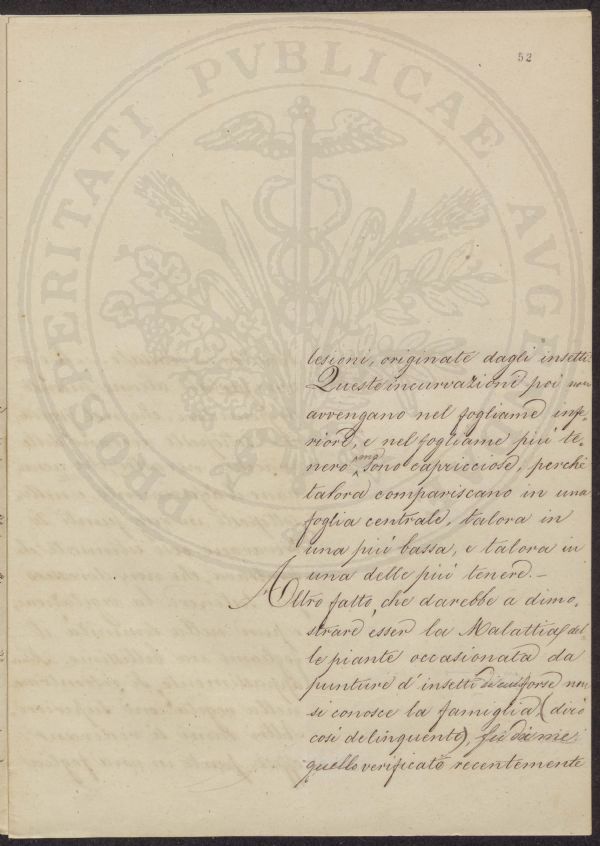 52
PROSPERITATI PVBLICAE AVGE
lesioni, originate dagli insetti.
Queste incurvazioni poi non
avvengano nel fogliame infe-
riore, e nel fogliame più te-
nero, ma sono capricciose, perchè
talora compariscano in una
foglia centrale, talora in
una più bassa, e talora in
una delle più tenere. —
Altro fatto, che darebbe a dimo-
strare esser la Malattia del-
le piante occasionata da
punture d'insetti di cui forse non
si conosce la famiglia, (dirò
così delinquente),
quello verificato recentemente